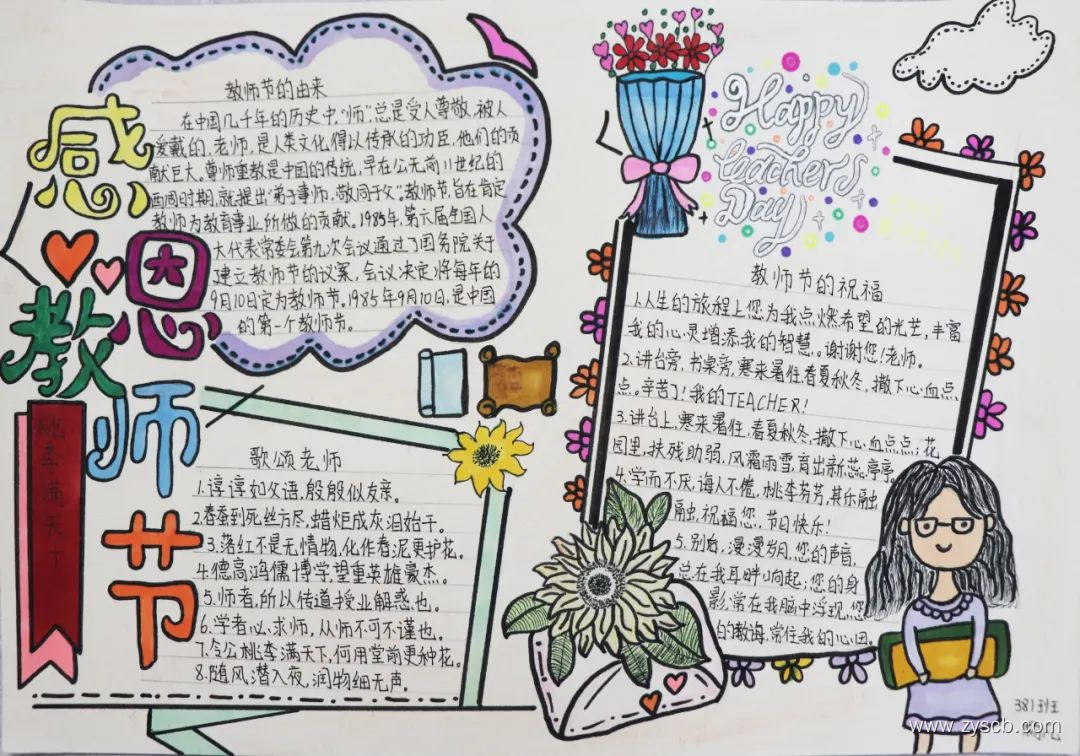 感恩教师节
教师节的由来
在中国几千年的历史中,"师"总是受人尊敬,被人
爱戴的,老师,是人类文化得以传承的功臣,他们的贡
献巨大。尊师重教是中国的传统,早在公元前11世纪的
西周时期,就提出"弟子事师,敬同于父"教师节,旨在肯定
教师为教育事业所做的贡献。1985年,第六届全国人
大代表常委会第九次会议通过了国务院关于
建立教师节的议案,会议决定将每年的
9月10日定为教师节。1985年9月10日,是中国
的第一个教师节。
桃李满天下
歌颂老师
1.谆谆如父语,殷殷似友亲。
2.春蚕到死丝方尽,蜡炬成灰泪始干。
3.落红不是无情物,化作春泥更护花。
4.德高鸿儒博学,望重英雄豪杰。
5.师者,所以传道授业解惑也。
6.学者必求师,从师不可不谨也。
7.令公桃李满天下,何用堂前更种花。
8.随风潜入夜,润物细无声。
Happy
teachers
Day
教师节的祝福
1.人生的旅程上,您为我点燃希望的光芒,丰富
我的心灵,增添我的智慧。谢谢您!老师。
2.讲台旁,书桌旁,寒来暑往,春夏秋冬,撒下心血点
点。辛苦了!我的TEACHER!
3.讲台上,寒来暑往,春夏秋冬,撒下心血点点;花
园里,扶残助弱,风霜雨雪,育出新蕊亭亭。
4.学而不厌,诲人不倦,桃李芬芳,其乐融
融,祝福您,节日快乐!
5.别后,漫漫岁月,您的声音,
总在我耳畔响起;您的身
影,常在我脑中浮现,您
的教诲,常住我的心田。
381班
www.zyscb.com